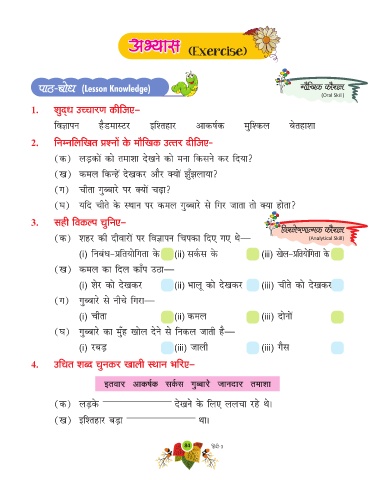 अभ्यास (Exercise)
पाठ-बोध (Lesson Knowledge)
मौखिक कौशल
(Oral Skill)
1. शुद्ध उच्चारण कीजिए–
विज्ञापन हैडमास्टर इश्तिहार आकर्षक मुश्किल बेतहाशा
2. निम्नलिखित प्रश्नों के मौखिक उत्तर दीजिए–
(क) लड़कों को तमाशा देखने को मना किसने कर दिया?
(ख) कमल किन्हें देखकर और क्यों झुँझलाया?
(ग) चीता गुब्बारे पर क्यों चढ़ा?
(घ) यदि चीते के स्थान पर कमल गुब्बारे से गिर जाता तो क्या होता?
3. सही विकल्प चुनिए–
विश्लेषणात्मक कौशल
(Analytical Skill)
(क) शहर की दीवारों पर विज्ञापन चिपका दिए गए थे—
(i) निबंध-प्रतियोगिता के (ii) सर्कस के (iii) खेल-प्रतियोगिता के
(ख) कमल का दिल काँप उठा—
(i) शेर को देखकर (ii) भालू को देखकर (iii) चीते को देखकर
(ग) गुब्बारे से नीचे गिरा—
(i) चीता (ii) कमल (iii) दोनों
(घ) गुब्बारे का मुँह खोल देने से निकल जाती है—
(i) रबड़ (ii) जाली (iii) गैस
4. उचित शब्द चुनकर खाली स्थान भरिए–
इतवार आकर्षक सर्कस गुब्बारे जानदार तमाशा
(क) लड़के देखने के लिए ललचा रहे थे।
(ख) इश्तिहार बड़ा था।
84 हिंदी-5